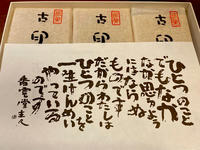 古印
古印
古印
ひとつのこと
でもなか
なか思うよう
にはならぬ
ものです
だからわたしは
ひとつのことを
一生けんめい
やっている
のです
香雲堂主人